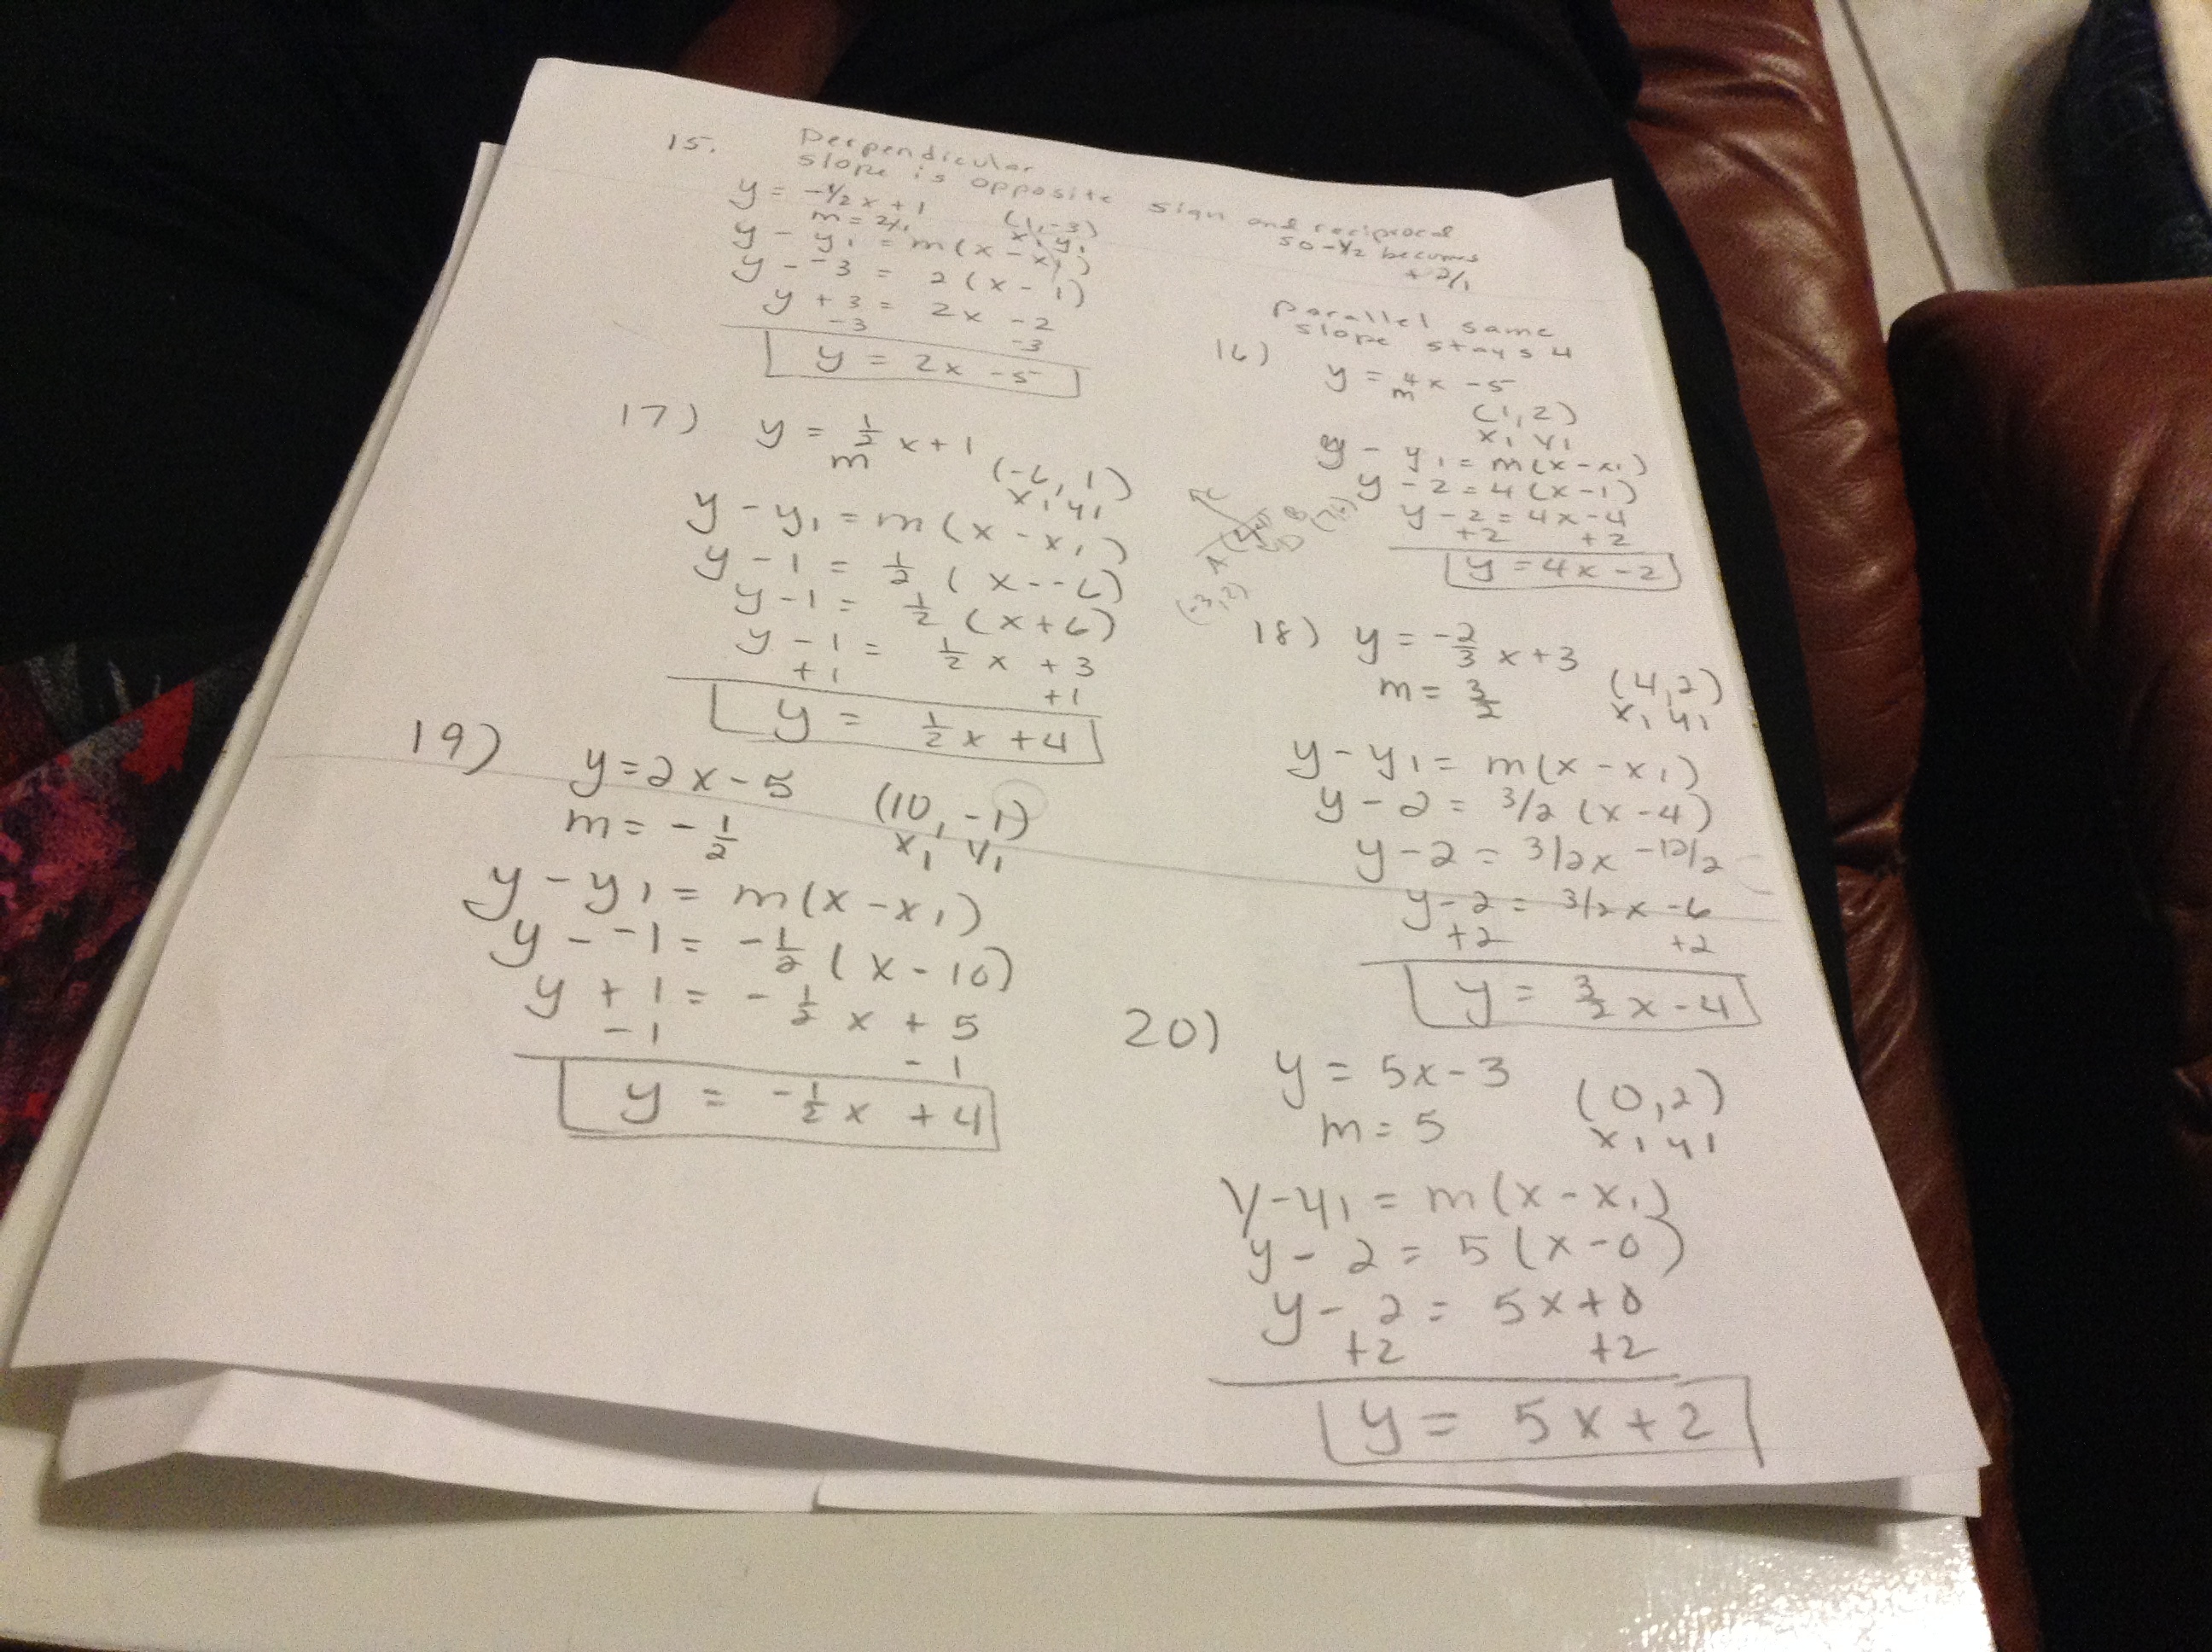 15. Perpendicular
slope is opposite sign and reciprocal
so -1/2 becomes
+2/1
y = -1/2 x + 1
m = 2/1 (1, -3)
x1 y1
y - y1 = m(x - x1)
y - -3 = 2(x - 1)
y + 3 = 2x - 2
-3 -3
y = 2x - 5
parallel same
slope stays 4
16) y = 4x - 5
m
(1, 2)
x1 y1
y - y1 = m(x - x1)
y - 2 = 4(x - 1)
y - 2 = 4x - 4
+2 +2
y = 4x - 2
17) y = 1/2 x + 1
m
(-6, 1)
x1 y1
y - y1 = m(x - x1)
y - 1 = 1/2 (x - - 6)
y - 1 = 1/2 (x + 6)
y - 1 = 1/2 x + 3
+1 +1
y = 1/2 x + 4
(-3, 2)
18) y = -2/3 x + 3
m = 3/2 (4, 2)
x1 y1
y - y1 = m(x - x1)
y - 2 = 3/2 (x - 4)
y - 2 = 3/2x - 12/2
y - 2 = 3/2x - 6
+2 +2
y = 3/2 x - 4
19) y = 2x - 5 (10, -1)
m = -1/2 x1 y1
y - y1 = m(x - x1)
y - -1 = -1/2 (x - 10)
y + 1 = -1/2 x + 5
-1 -1
y = -1/2 x + 4
20)
y = 5x - 3 (0, 2)
m = 5 x1 y1
y - y1 = m(x - x1)
y - 2 = 5(x - 0)
y - 2 = 5x + 0
+2 +2
y = 5x + 2